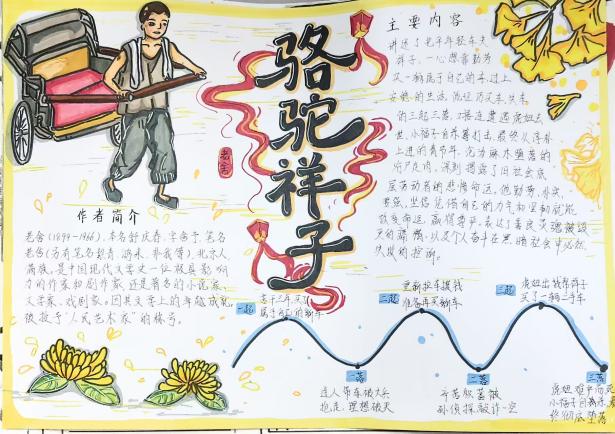 骆驼祥子
老舍
主要内容
讲述了北平年轻车夫
祥子,一心想靠勤劳
买一辆属于自己的车,过上
安稳的生活,
的三起三落,
世,小福子自杀等打击,最终从淳朴
上进的青年,沦为麻木堕落的
行尸走肉,深刻揭露了旧社会底
层劳动者的悲惨命运。
坚信凭借自己的力气和
改变命运,赢得尊严。表达了善良灵魂被毁
灭的痛惜,以及个人奋斗在黑暗社会中必然
失败的控诉。
作者简介
老舍(1899-1966),本名舒庆春,字舍予,笔名
老舍(另有笔名絜青、鸿来、非我等),北京人
满族,是中国现代文学史一位极具影响
力的作家和剧作家,还是著名的小说家、
文学家、戏剧家。因其文学上的卓越成就,
被授予“人民艺术家”的称号。
一起
苦干三年买了
属于自己的新车
一落
连人带车被大兵
抢走,理想破灭
二起
重新拉车攒钱
准备再买新车
二落
辛苦积蓄被
孙侦探敲诈一空
三起
虎妞出钱帮祥子
买了一辆二手车
三落
虎妞难产而死
小福子自杀
终彻底堕落